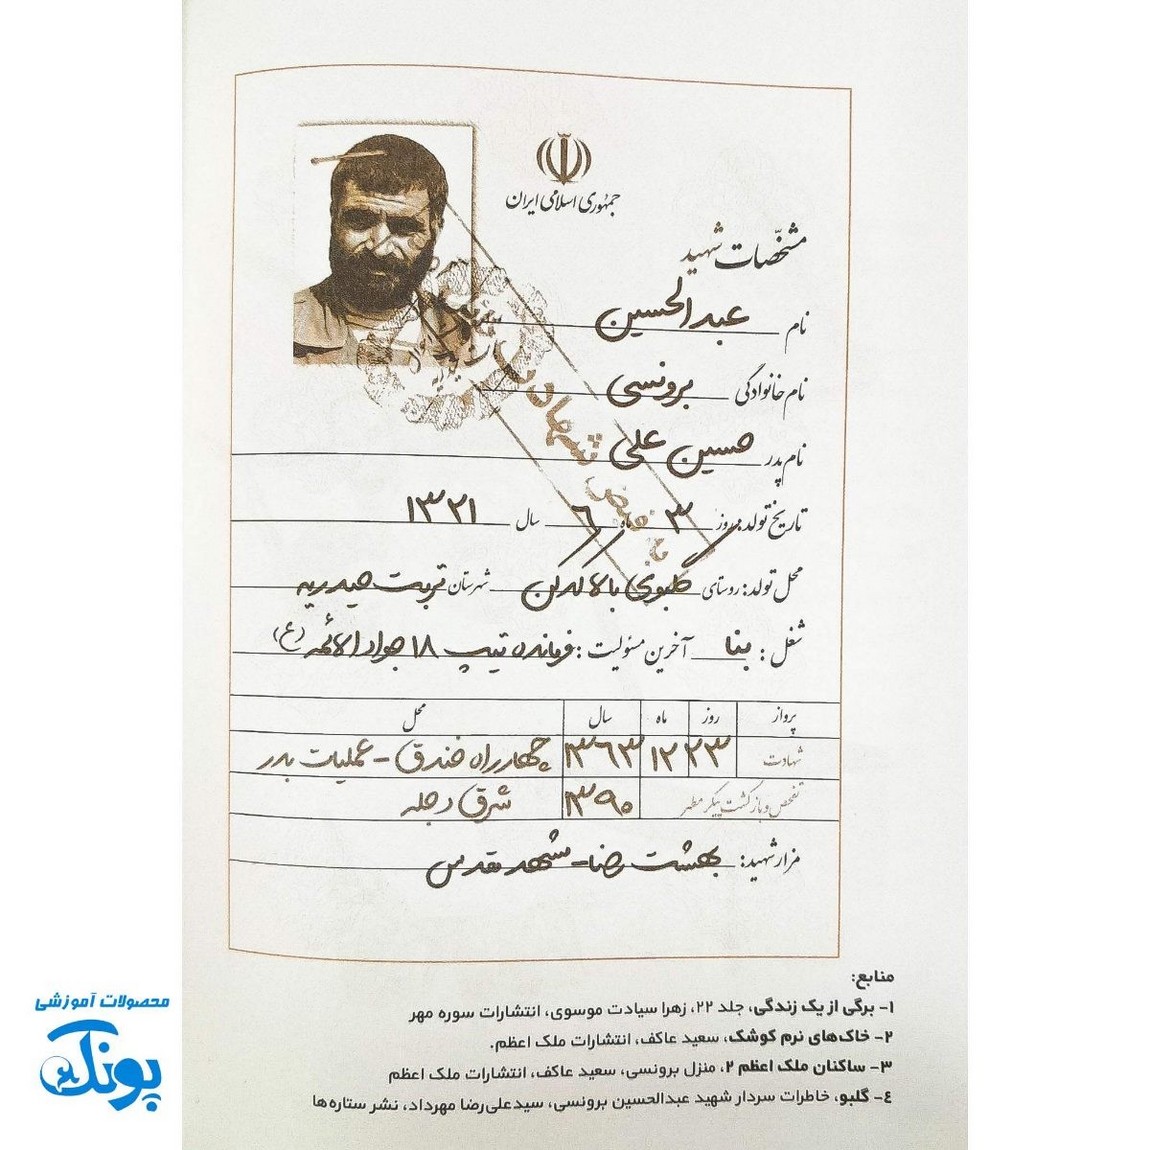 جمهوری اسلامی ایران
مشخّصات شهید
نام عبدالحسین
نام خانوادگی برونسی
نام پدر حسین علی
تاریخ تولد: روز ۳ ماه ۶ سال ۱۳۲۱
محل تولد: روستای گلبوی بالا کدکن شهرستان تربت حیدریه
شغل: بنا آخرین مسئولیت: فرمانده تیپ ۱۸ جواد الائمه (ع)
پرواز روز ماه سال محل
شهادت ۲۳ ۱۲ ۱۳۶۳ چهارراه خندق - عملیات بدر
تفحص و بازگشت پیکر مطهر ۱۳۹۰ شرق دجله
مزار شهید: بهشت رضا - مشهد مقدس
به فیض شهادت
منابع:
۱- برگی از یک زندگی، جلد ۲۲، زهرا سیادت موسوی، انتشارات سوره مهر
۲- خاک‌های نرم کوشک، سعید عاکف، انتشارات ملک اعظم.
۳- ساکنان ملک اعظم ۲، منزل برونسی، سعید عاکف، انتشارات ملک اعظم
٤- گلبو، خاطرات سردار شهید عبدالحسین برونسی، سیدعلی‌رضا مهرداد، نشر ستاره‌ها
محصولات آموزشی
پونک